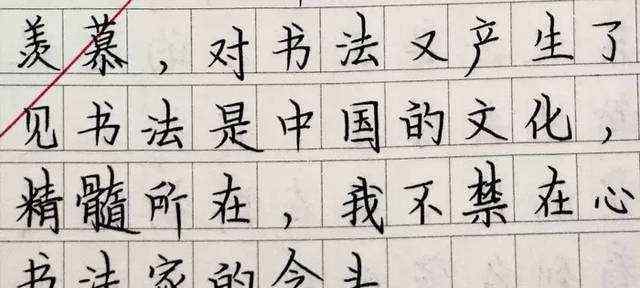 羡慕，对书法又产生了
见书法是中国的文化，
精髓所在，我不禁在心
书法家的念头